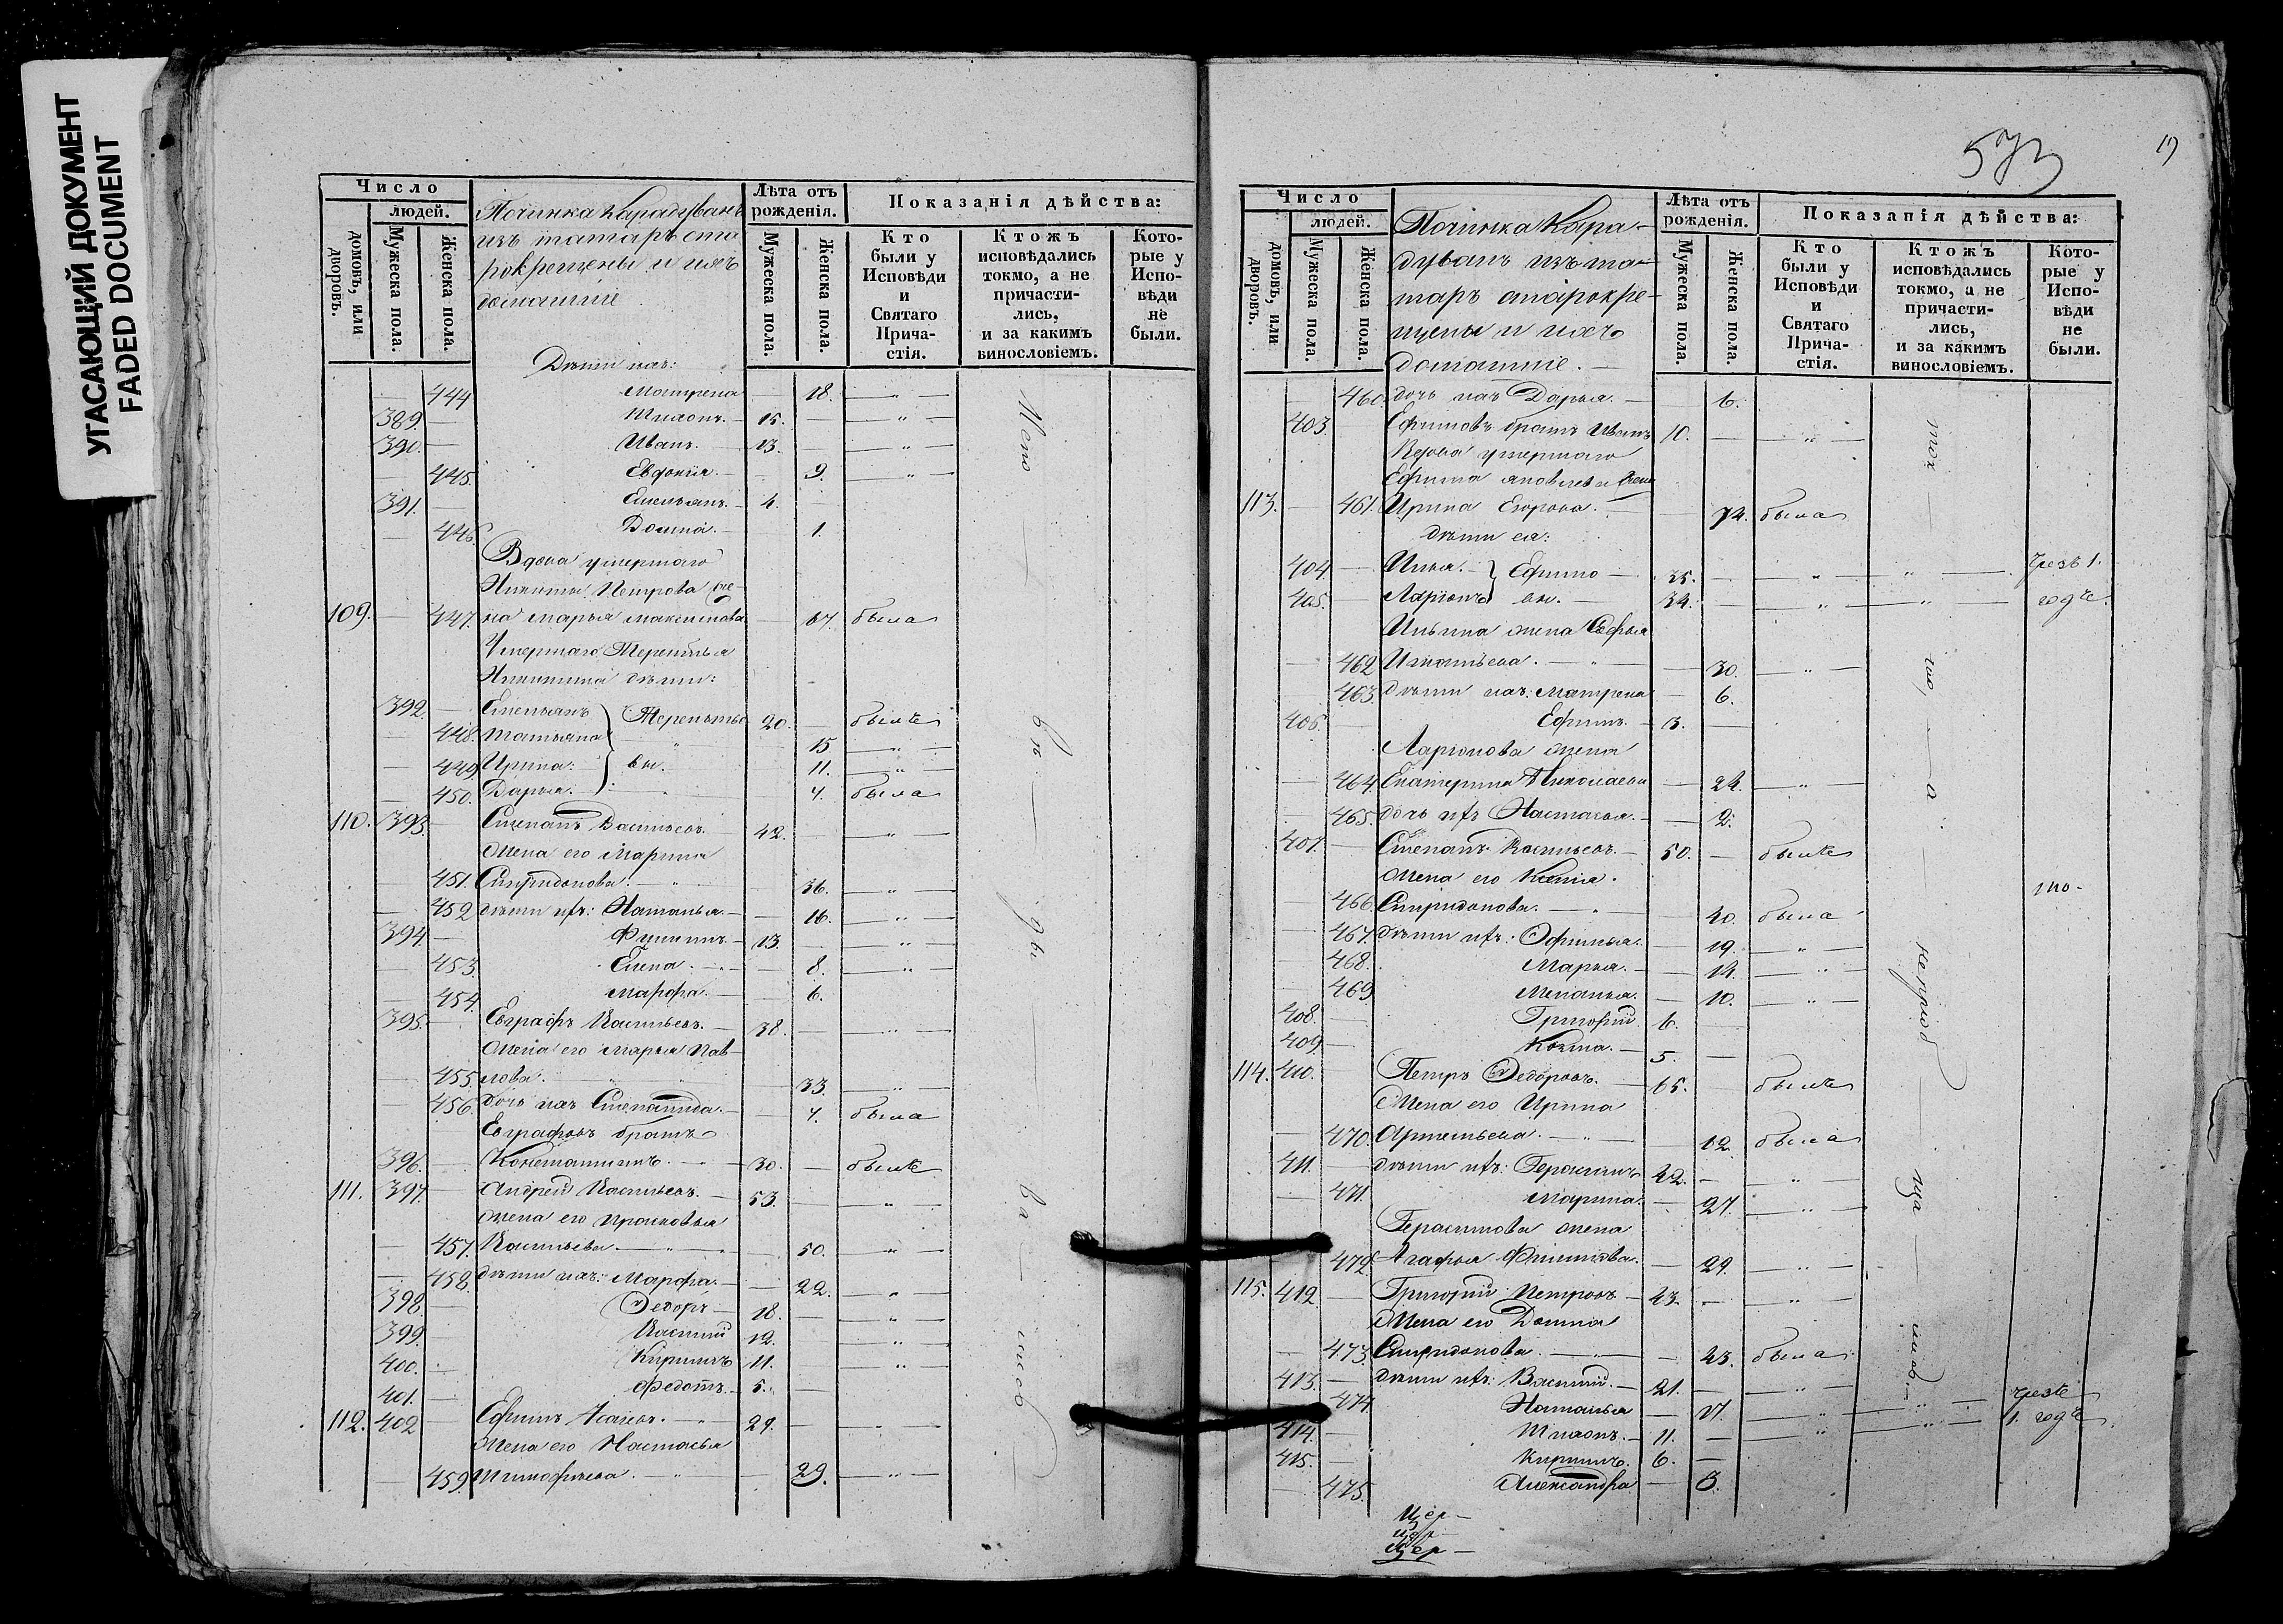 УГАСАЮЩИЙ ДОКУМЕНТ
FADED DOCUMENT
Число
людей.
домовъ, или дворовъ.
Мужеска пола.
Женска пола.
Починка Карадуванъ
изъ татаръ ста
рокрещены и ихъ
домашніе
Лѣта отъ рожденія.
Мужеска пола.
Женска пола.
Показанія дѣйства:
Кто были у Исповѣди и Святаго Прича-стія.
Ктожъ исповѣдались токмо, а не причасти-лись, и за какимъ винословіемъ.
Кото-рые у Испо-вѣди не были.
Дѣти ихъ:
444 Матрена 18. — " —
389. — Тихонъ. — 15. — " —
390. — Иванъ. — 13. — " —
445. Евдокія. — 9. — " —
391. Емельянъ. — 4. —
446. Домна. — 1.
Вдова умершаго
Никиты Петрова же-
109. — 447. на Марья Максимова — 67. была
Умершаго Терентья
Никитина дѣти:
392. — Емельянъ Терентье 20. — былъ
448. Татьяна 15 — " —
449. Ирина: вы. 11. — " —
450. Дарья. 7. была
110. 393. — Степанъ Васильевъ 42. — " —
Жена его Марина
451. Спиридонова. — " — 36. — " —
452 дѣти ихъ: Наталья. — 16. — " —
394. — Филиппъ — 13. — " —
453. Елена. — 8. — " —
454. Марфа. — 6.
395. — Евграфъ Васильевъ. — 38. — " —
Жена его Марья Пав-
455. лова. 33. — " —
456. дочь ихъ Степанида. — 7. была
Евграфовъ братъ
396. — Константинъ. — 30. — былъ
111. 397. Андрей Васильевъ. — 53. — " —
Жена его Прасковья
457. Васильева — " — 50. — " —
458. дѣти ихъ: Марфа. — 22. — " —
398. — Ѳедоръ — 18. — " —
399. Василій 12. — " —
400. Кириллъ 11. — " —
401. — Федотъ. — 5. —
112. 402 Ефимъ — " — 29. — " —
Жена его Настасья
459. Тимофѣева. — " — 29. — " —
573
Число
людей.
домовъ, или дворовъ.
Мужеска пола.
Женска пола.
Починка Кара-
дуванъ изъ та-
таръ старокре-
щены и ихъ
домашніе. —
Лѣта отъ рожденія.
Мужеска пола.
Женска пола.
Показанія дѣйства:
Кто были у Исповѣди и Святаго Прича-стія.
Ктожъ исповѣдались токмо, а не причасти-лись, и за какимъ винословіемъ.
Кото-рые у Испо-вѣди не были.
460. дочь ихъ Дарья. — 6.
403. Ефимовъ братъ Иванъ 10. — " —
Вдова умершаго
Ефима Яковлева жена
113. — 461. Ирина Егорова. — 72. была
дѣти ея:
404. — Илья. — Ефимо — 35. — " — " —
405. — Ларіонъ вы. — 32. — " — " — годъ
Ильина жена Софья
462 Игнатьева. — " — 30. — " —
463. дѣти ихъ: Матрена — 6.
406. Ефимъ. — 3. —
Ларіонова жена
464. Екатерина Николаева — 24. — " —
465. дочь ихъ Настасья. — 2.
407. — Степанъ Васильевъ. — 50. — былъ
Жена его Ксенія.
466. Спиридонова. — " — 40. была
467. дѣти ихъ: Офимья. — 19. — " —
468. Марья. — 14. — " —
469 Меланья. — 10. — " —
408. — Григорій 6. —
409. — Козма. — 5. —
114. 410. Петръ Ѳедоровъ. — 65. былъ
Жена его Ирина
470. Артемьева. — " — 62. была
411. — дѣти ихъ: Герасимъ 42. — " —
471. Марина. — 27. — " —
Герасимова жена
472. Агафья Филиппова. — 29. — " —
115. 412. Григорій Петровъ — 43. — " —
Жена его Домна
473. Спиридонова. — " — 43. была
413. — дѣти ихъ: Василій. — 21. — " —
474. Наталья — 17. — " —
414. Тихонъ. — 11. — " — 1. годъ
415. Кириллъ. 6. —
475. Александра — 3.